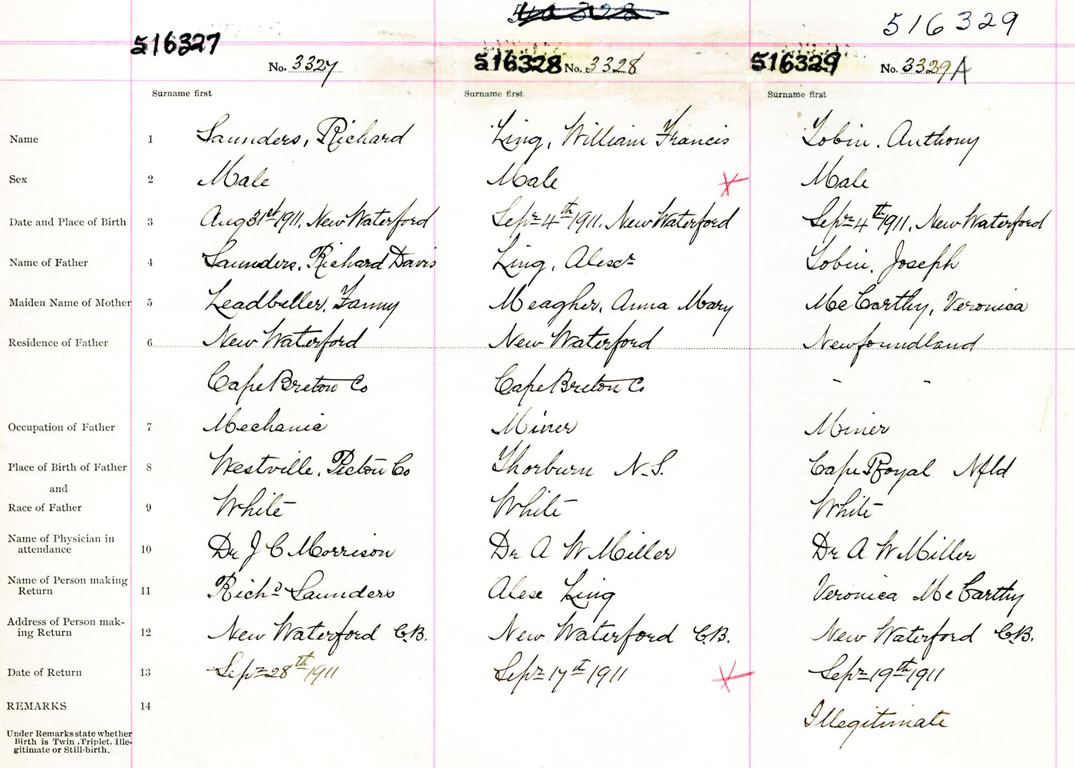 516329
516327 No. 3327 516328 No. 3328 516329 No. 3329A
Surname first Surname first Surname first
Name 1 Saunders, Richard Ling, William Francis Tobin, Anthony
Sex 2 Male Male Male
Date and Place of Birth 3 Aug 31st 1911, New Waterford Sept 4th 1911, New Waterford Sept 4th 1911, New Waterford
Name of Father 4 Saunders, Richard Davis Ling, Alexr Tobin, Joseph
Maiden Name of Mother 5 Leadbeller, Fanny Meagher, Anna Mary McCarthy, Veronica
Residence of Father 6 New Waterford New Waterford Newfoundland
Cape Breton Co Cape Breton Co " "
Occupation of Father 7 Mechanic Miner Miner
Place of Birth of Father 8 Westville, Pictou Co Thorburn N.S. Cape Royal Nfld
and
Race of Father 9 White White White
Name of Physician in
attendance 10 Dr J C Morrison Dr A W Miller Dr A W Miller
Name of Person making
Return 11 Richd Saunders Alex Ling Veronica McCarthy
Address of Person mak-
ing Return 12 New Waterford C.B. New Waterford C.B. New Waterford C.B.
Date of Return 13 Sept 28th 1911 Sept 17th 1911 Sept 19th 1911
REMARKS 14 Illegitimate
Under Remarks state whether
Birth is Twin, Triplet, Ille-
gitimate or Still-birth.